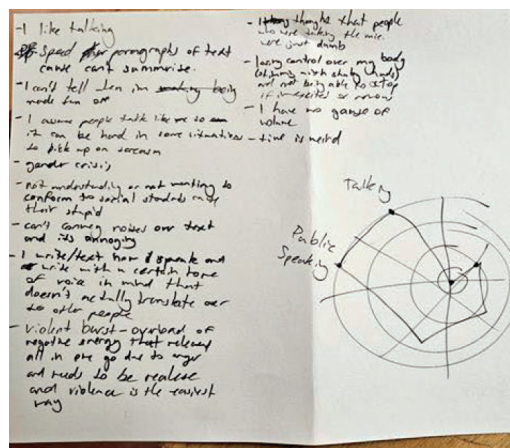 -I like talking
speed paragraphs of text
cause can't summerise.
-I can't tell when im being
made fun of
-I assume people talk like me so
it can be hard in some situations
to pick up on sarcasm
-gender crisis
-not understanding or not wanting to
conform to social standards cause
their stupid
-can't convey noises over text
and its annoying
-I write/text how I speak and
write with a certain tone
of voice in mind that
doesn't actually translate over
to other people
-violent burst-overload of
negative energy that released
all in one go due to anger
and needs to be
and violence is the easiest
way
-I thought that people
who were taking the mic.
were just dumb
-losing control over my body
(shaky hands)
and not being able to stop
if excited or nervous
-I have no gauge of
volume
-time is weird
Talking
Public
Speaking